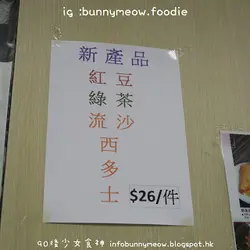 ig :bunnymeow.foodie
新產品
紅豆
綠茶
流沙
西
多
士
$26/件
90後少女食神 infobunnymeow.blogspot.hk